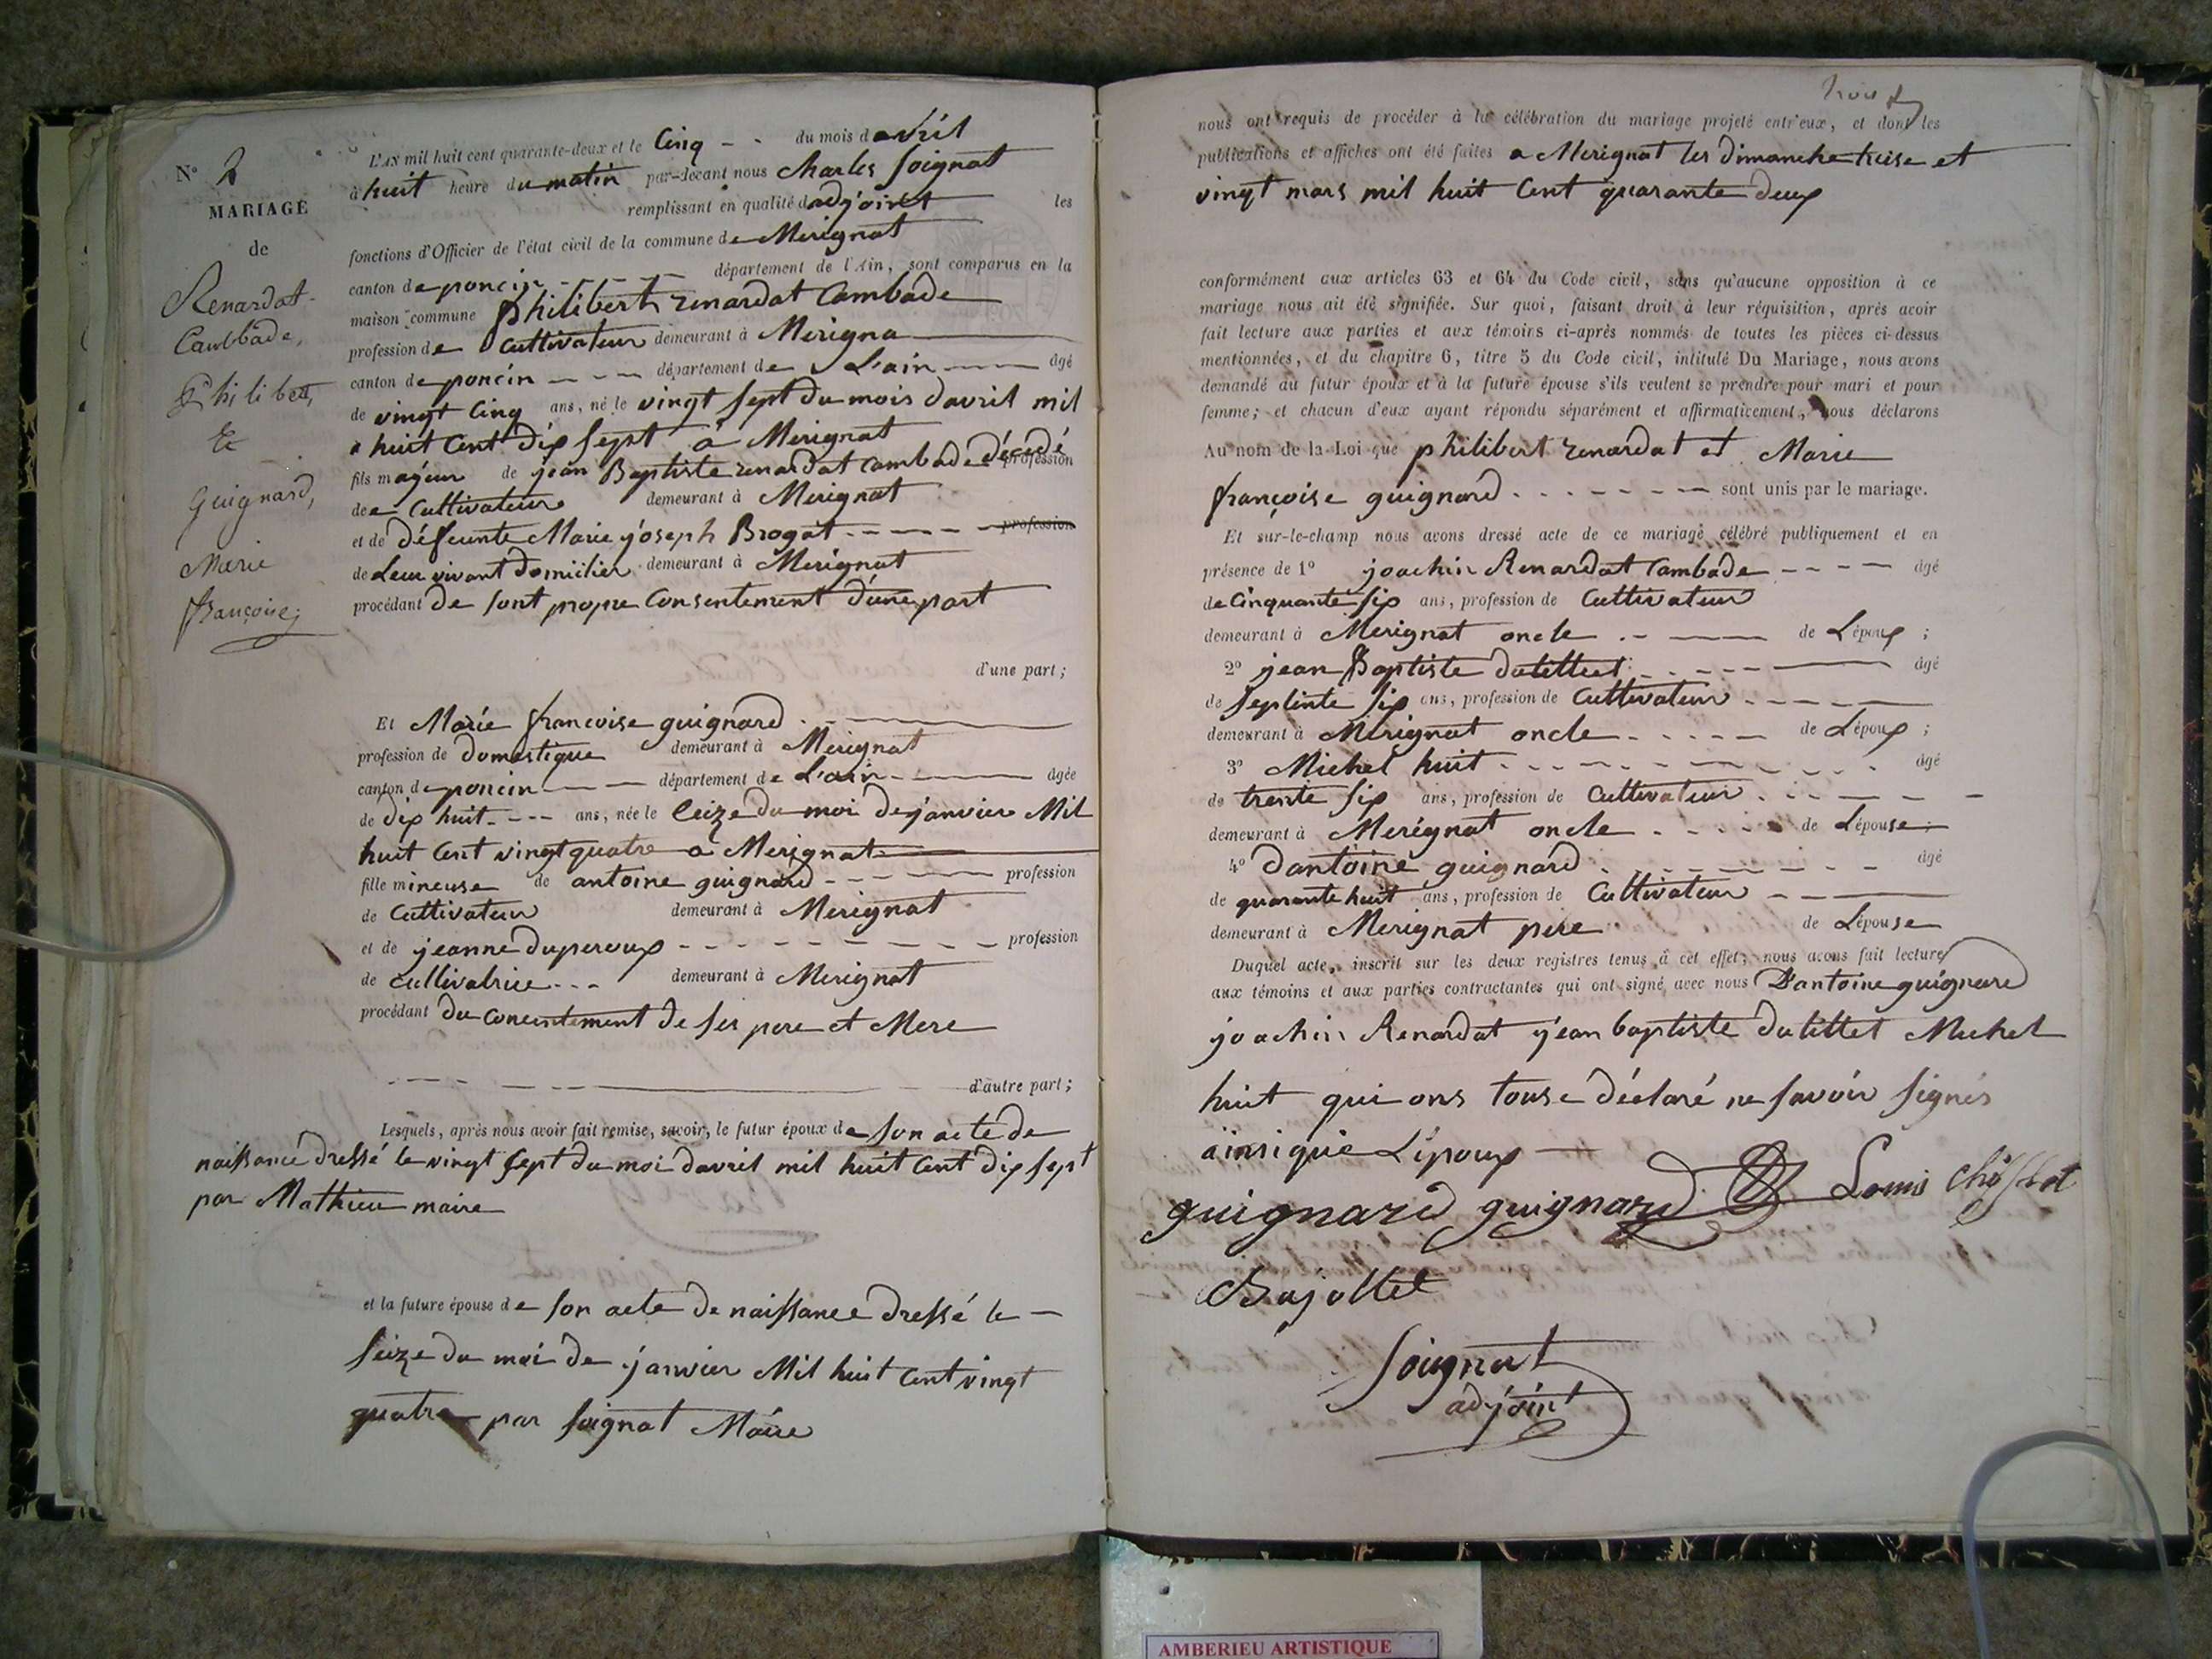 N° 2
MARIAGE
de
Renardat-
Cambade,
Philibert,
Et
Guignard,
Marie
françoise,
L'AN mil huit cent quarante-deux et le Cinq - - du mois d avril
à huit heure du matin par-devant nous Charles Soignat
remplissant en qualité d adjoint les
fonctions d'Officier de l'état civil de la commune de Merignat
canton de poncin - - - - département de l'Ain, sont comparus en la
maison commune philibert renardat Cambade
profession de Cultivateur demeurant à Merigna
canton de poncin - - - département de L'ain - - âgé
de vingt Cinq ans, né le vingt sept du mois davril mil
huit Cent dix sept a Merignat
fils majeur de jean Baptiste renardat Cambade décedé profession
de Cultivateur demeurant à Merignat
et de défeunte Marie joseph Brogat - - - - profession
de Leur vivant domicilier demeurant à Merignat
procédant de sont propre Consentement dune part
d'une part ;
Et Marie francoise guignard
profession de domestique demeurant à Merignat
canton de poncin département de L'ain âgée
de dix huit - - - ans, née le Seize du moi de janvier Mil
huit Cent vingt quatre a Merignat
fille mineuse de antoine guignard - - - profession
de Cultivateur demeurant à Merignat
et de jeanne duperoux - - - - - - - profession
de Cultivatrice - - - demeurant à Merignat
procédant du consentement de ses pere et Mere
d'autre part ;
Lesquels, après nous avoir fait remise, savoir, le futur époux de son acte de
naissance dressé le vingt sept du moi davril mil huit Cent dix sept
par Mathieu maire
et la future épouse de son acte de naissance dressé le
seize du moi de janvier Mil huit Cent vingt
quatre par soignat Maire
nous ont requis de procéder à la célébration du mariage projeté entr'eux, et dont les
publications et affiches ont été faites a Merignat les dimanche treise et
vingt mars mil huit Cent quarante deux
conformément aux articles 63 et 64 du Code civil, sans qu'aucune opposition à ce
mariage nous ait été signifiée. Sur quoi, faisant droit à leur réquisition, après avoir
fait lecture aux parties et aux témoins ci-après nommés de toutes les pièces ci-dessus
mentionnées, et du chapitre 6, titre 5 du Code civil, intitulé Du Mariage, nous avons
demandé au futur époux et à la future épouse s'ils veulent se prendre pour mari et pour
femme ; et chacun d'eux ayant répondu séparément et affirmativement, nous déclarons
Au nom de la Loi que philibert renardat et Marie
françoise guignard - - - - - - sont unis par le mariage.
Et sur-le-champ nous avons dressé acte de ce mariage célébré publiquement et en
présence de 1° joachin Renardat Cambade - - - - âgé
de Cinquante six ans, profession de Cultivateur
demeurant à Merignat oncle de L'époux ;
2° jean Baptiste dutillet âgé
de septente six ans, profession de Cultivateur
demeurant à Merignat oncle de L'époux ;
3° Michel huit âgé
de trente six ans, profession de Cultivateur
demeurant à Merignat oncle de Lépouse ;
4° dantoine guignard âgé
de quarante huit ans, profession de Cultivateur
demeurant à Merignat pere de Lépouse
Duquel acte, inscrit sur les deux registres tenus à cet effet, nous avons fait lecture
aux témoins et aux parties contractantes qui ont signé avec nous Dantoine guignard
joachin Renardat jean baptiste dutillet Michel
huit qui ons touse déclaré ne savoir signés
ainsi que L'époux
guignard guignard Louis
Bajollet
Soignat
adjoint
AMBERIEU ARTISTIQUE